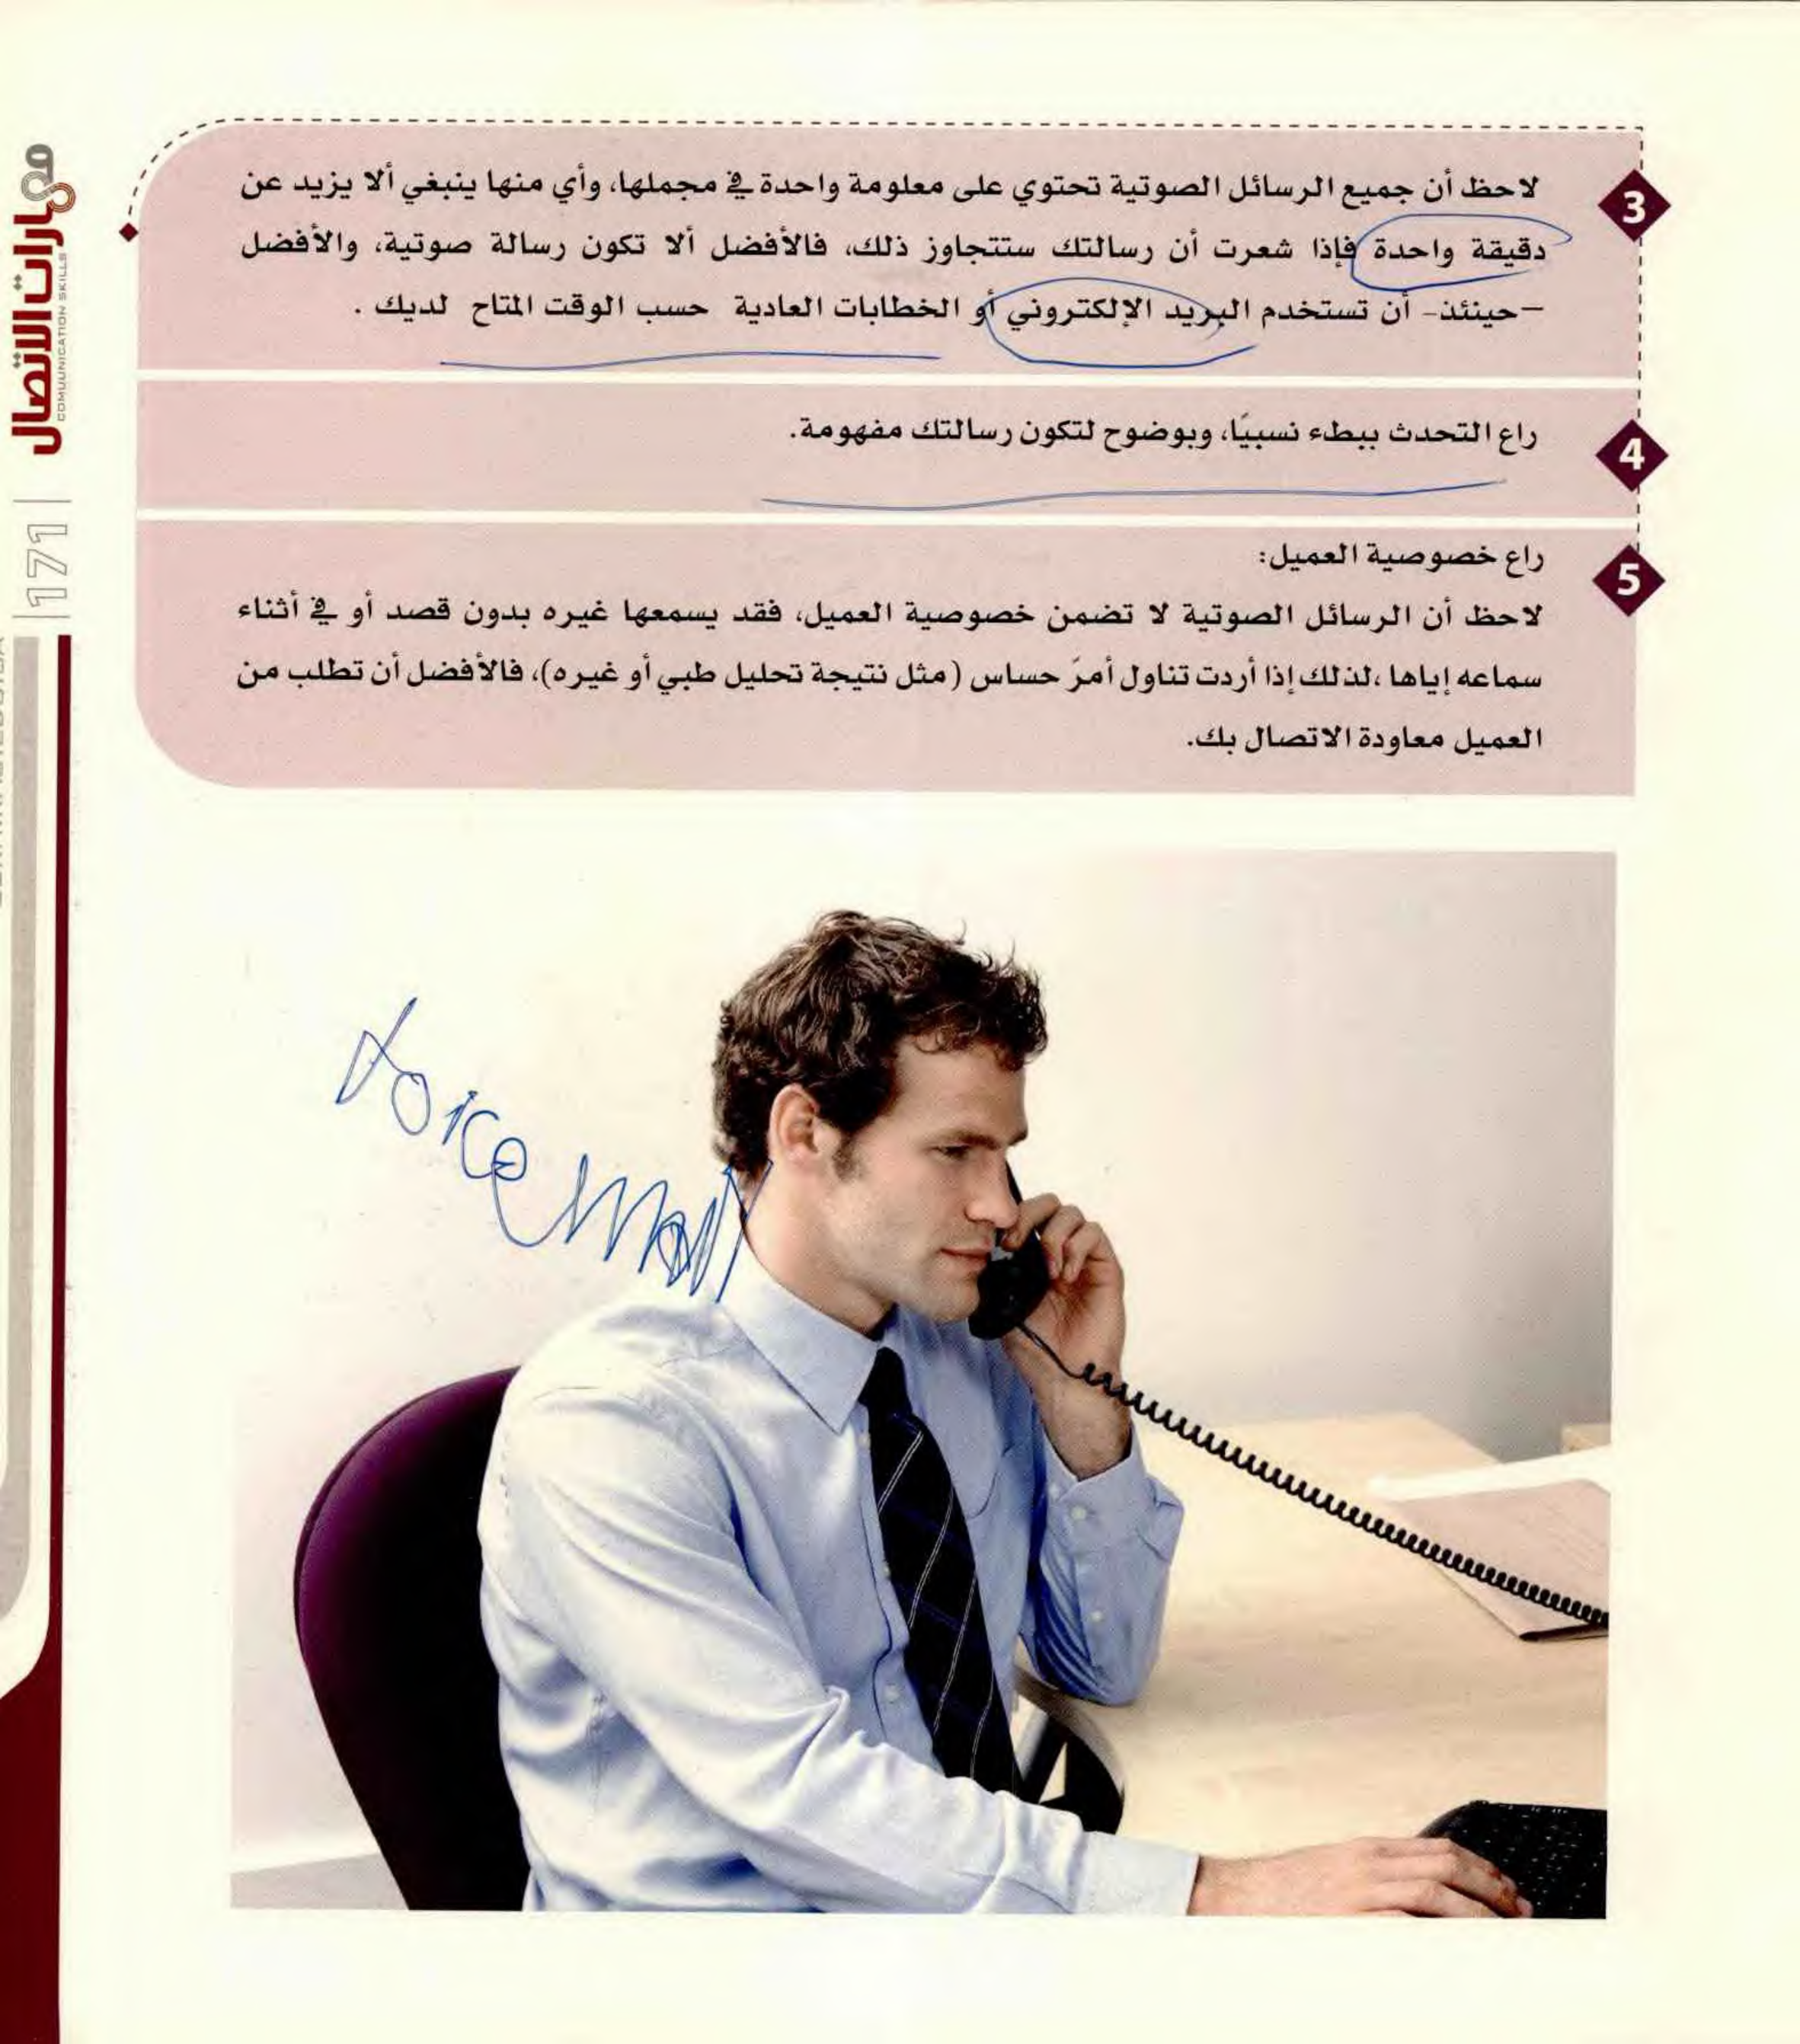 3
لاحظ أن جميع الرسائل الصوتية تحتوي على معلومة واحدة في مجملها، وأي منها ينبغي ألا يزيد عن
دقيقة واحدة فإذا شعرت أن رسالتك ستتجاوز ذلك، فالأفضل ألا تكون رسالة صوتية، والأفضل
-حينئذ- أن تستخدم البريد الإلكتروني أو الخطابات العادية حسب الوقت المتاح لديك .
4
راع التحدث ببطء نسبيًا، وبوضوح لتكون رسالتك مفهومة.
5
راع خصوصية العميل:
لاحظ أن الرسائل الصوتية لا تضمن خصوصية العميل، فقد يسمعها غيره بدون قصد أو في أثناء
سماعه إياها ،لذلك إذا أردت تناول أمرَ حساس (مثل نتيجة تحليل طبي أو غيره)، فالأفضل أن تطلب من
العميل معاودة الاتصال بك.
voice mail
مهارات الاتصال
COMUUNICATION SKILLS
171